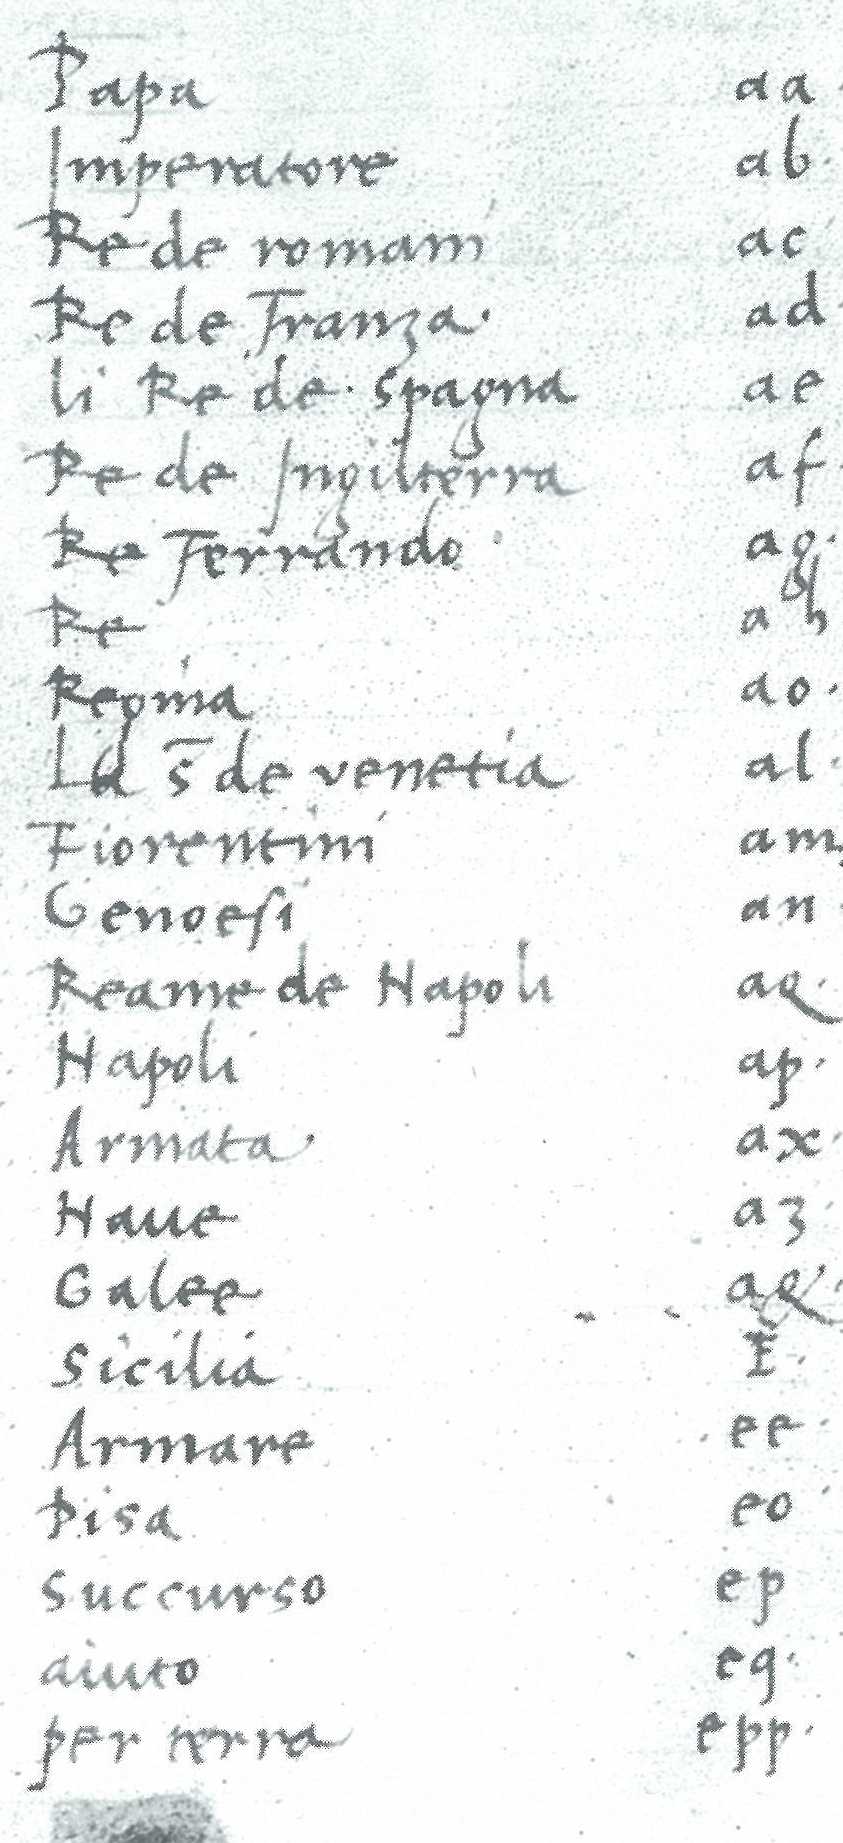 Papa aa.
Imperatore ab.
Re de romani ac
Re de Franza. ad.
li Re de. Spagna ae
Re de Ingilterra af.
Re Ferrando ag.
Re ah
Regina ao.
La s̅ de venetia al.
Fiorentini am.
Genoesi an.
Reame de Napoli aq.
Napoli ap.
Armata. ax.
Naue az.
Galee
Sicilia
Armare ee.
Pisa eo.
Succurso ep
aiuto eq.
per terra epp.